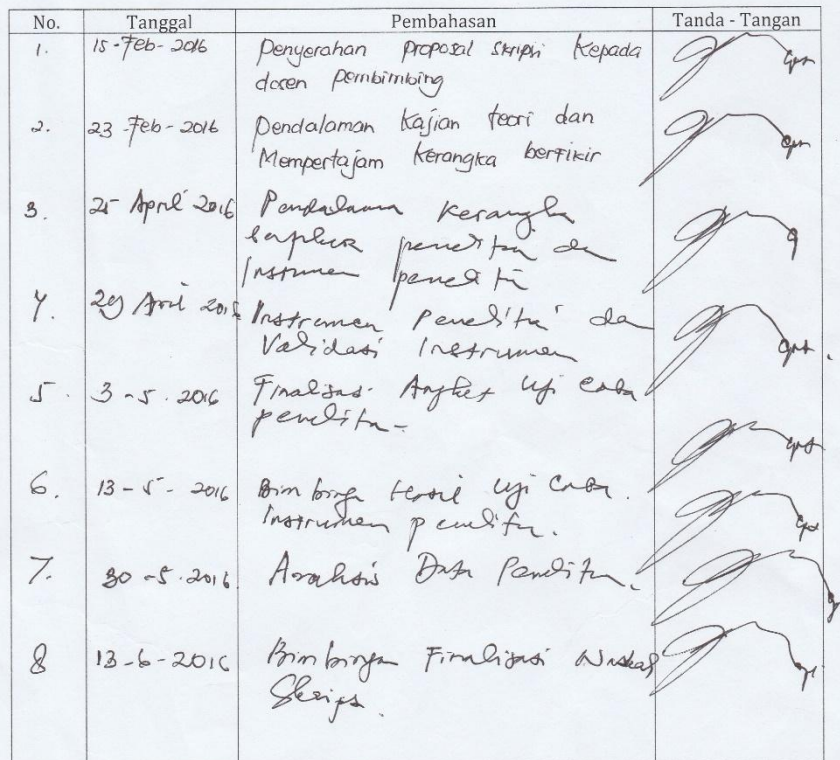 No. Tanggal Pembahasan Tanda - Tangan
1. 15-Feb-2016 Penyerahan proposal skripsi kepada
dosen pembimbing
2. 23-Feb-2016 Pendalaman kajian teori dan
Mempertajam kerangka berfikir
3. 25 April 2016 Pendalaman Kerangka
penelitian dan
Instrumen penelitian
4. 29 April 2016 Instrumen Penelitian dan
Validasi Instrumen
5. 3-5-2016 Finalisasi Angket Uji Coba
penelitian
6. 13-5-2016 Bimbingan Hasil Uji Coba.
Instrumen penelitian.
7. 30-5-2016. Analisis Data Penelitian.
8 13-6-2016 Bimbingan Finalisasi Naskah
Skripsi.